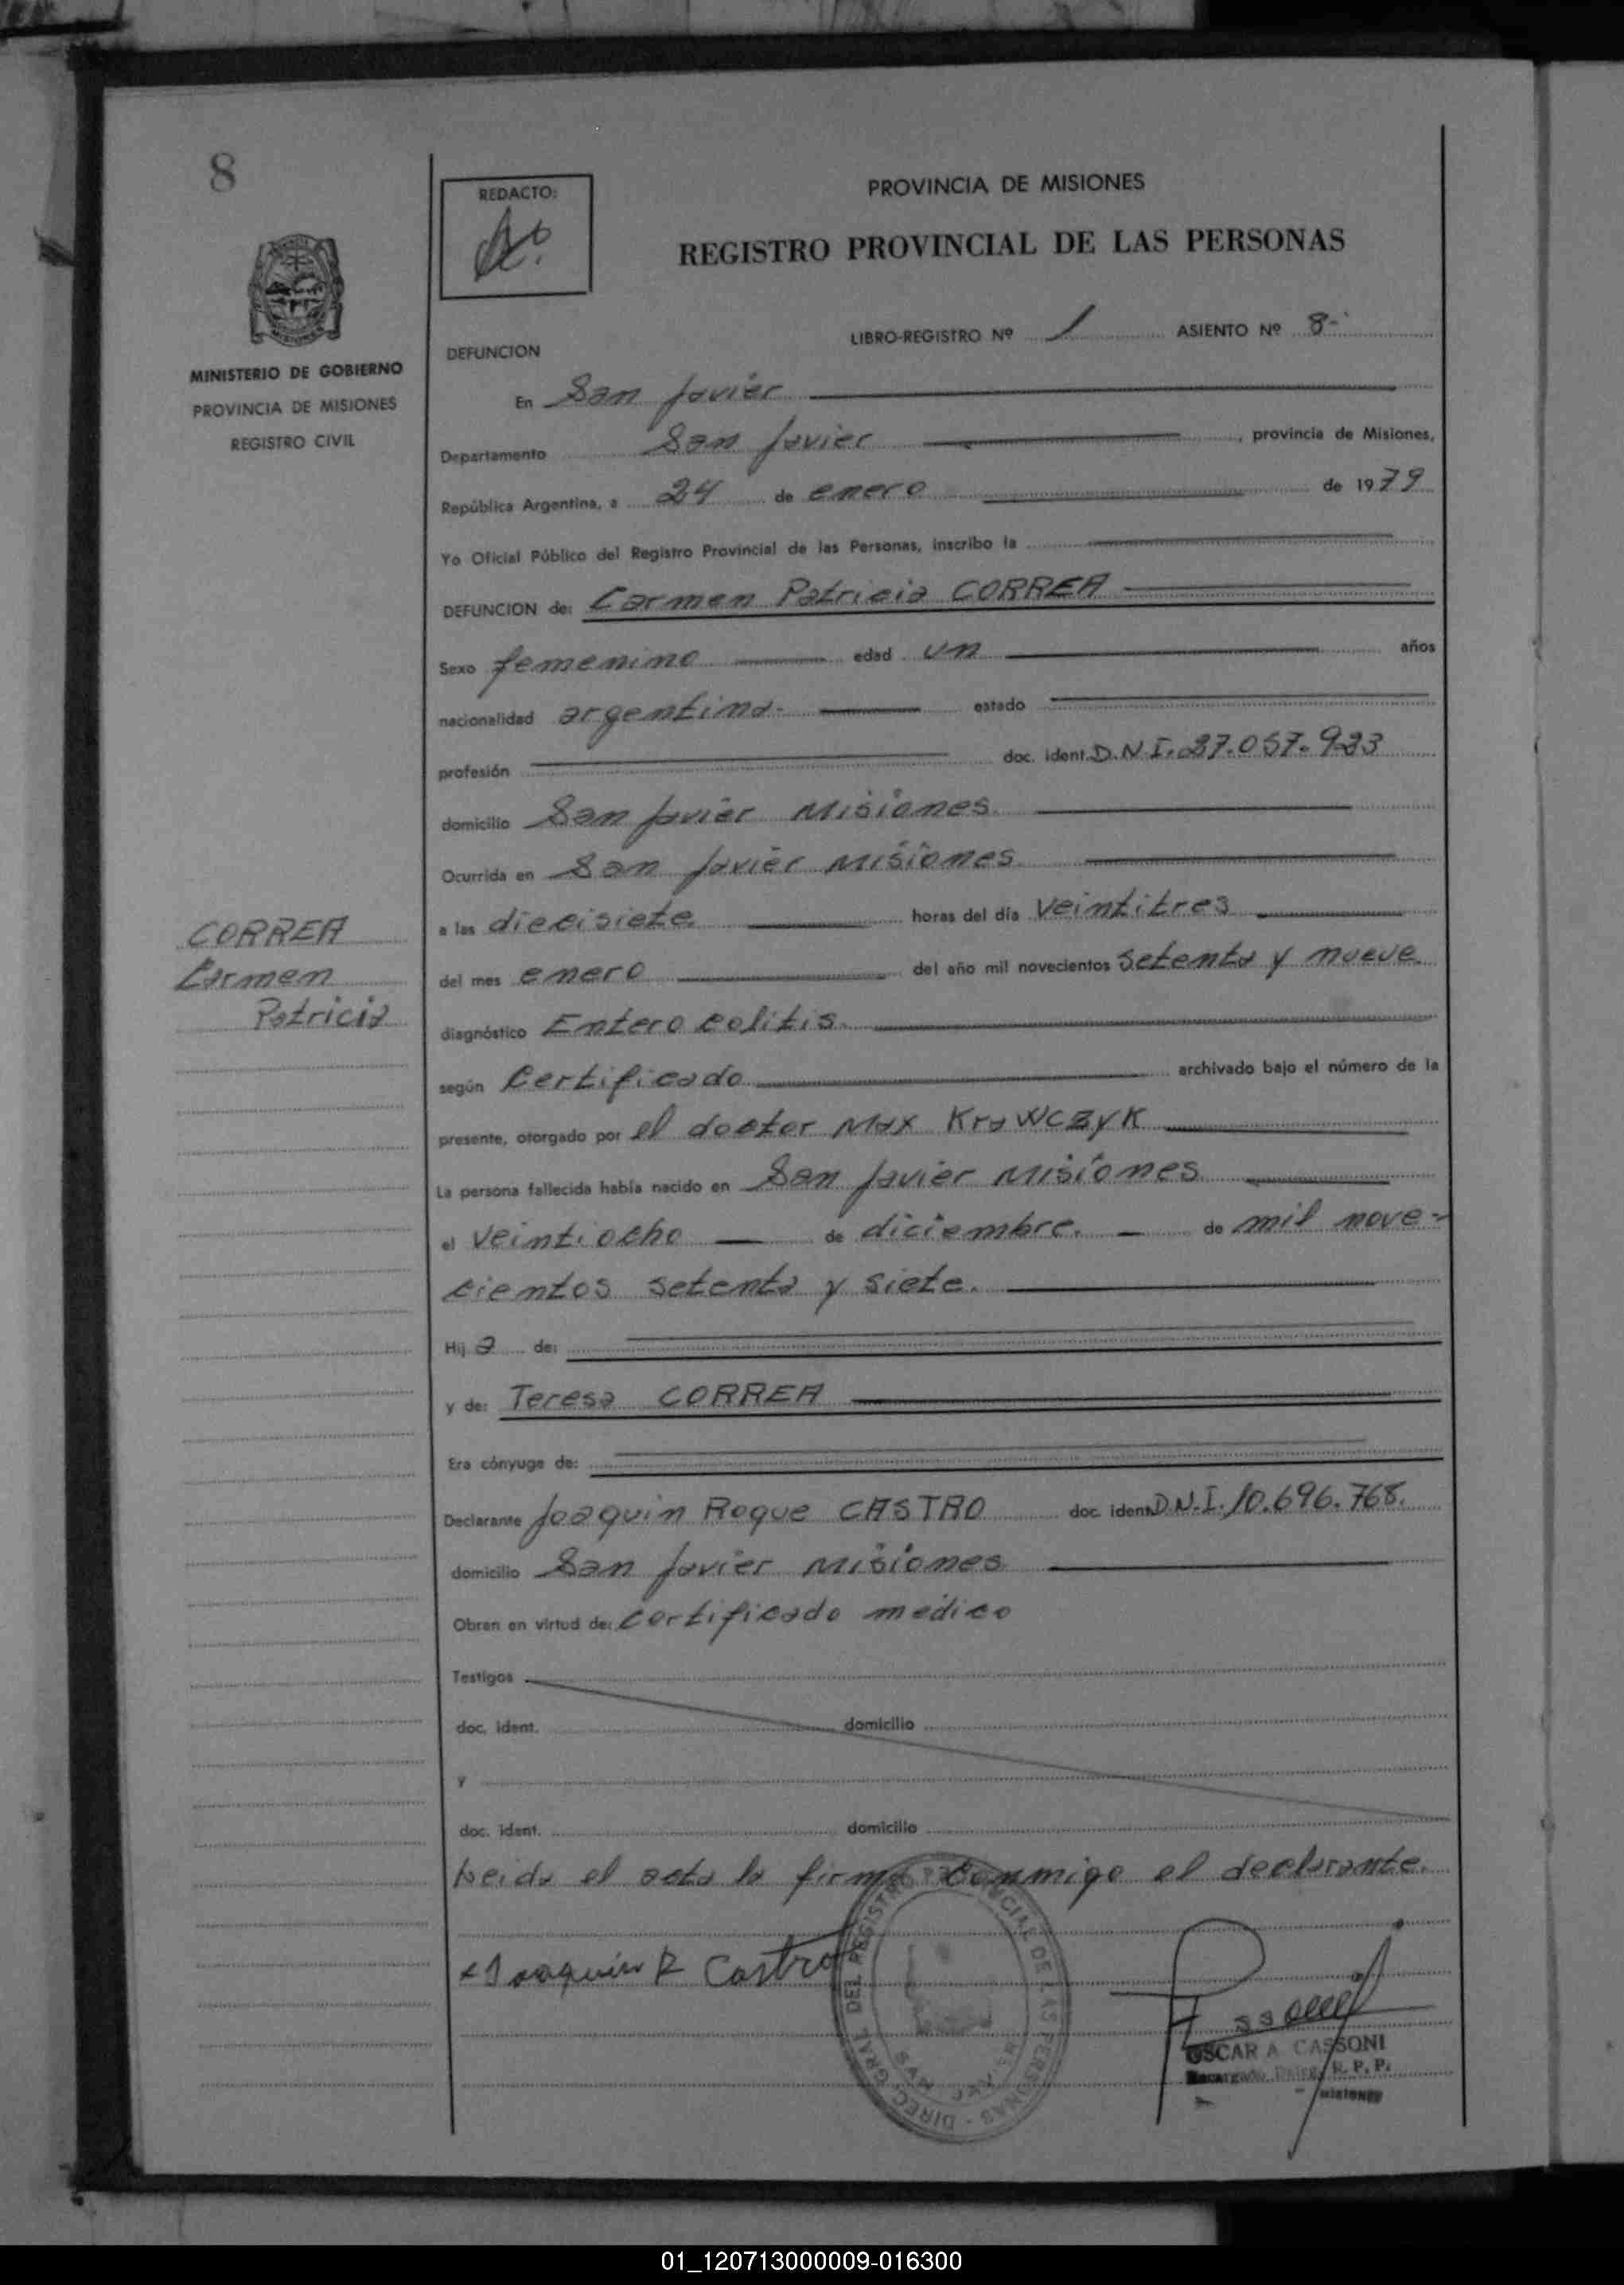 8
REDACTO:
PROVINCIA DE MISIONES
REGISTRO PROVINCIAL DE LAS PERSONAS
LIBRO-REGISTRO Nº 1 ASIENTO Nº 8-
MINISTERIO DE GOBIERNO
PROVINCIA DE MISIONES
REGISTRO CIVIL
DEFUNCION
En San Javier
Departamento San Javier, provincia de Misiones,
República Argentina, a 24 de enero de 1979
Yo Oficial Público del Registro Provincial de las Personas, inscribo la
DEFUNCION de: Carmen Patricia CORREA
Sexo femenino edad un años
nacionalidad argentina. estado
profesión doc. ident. D.N.I. 27.057.923
domicilio San Javier Misiones.
Ocurrida en San Javier Misiones
CORREA
Carmen
Patricia
a las diecisiete horas del día veintitres
del mes enero del año mil novecientos setenta y nueve
diagnóstico Entero colitis.
según Certificado archivado bajo el número de la
presente, otorgado por el doctor Max KraWCZyK
La persona fallecida había nacido en San Javier Misiones
el veintiocho de diciembre. de mil nove-
cientos setenta y siete.
Hija de:
y de: Teresa CORREA
Era cónyuge de:
Declarante Joaquin Roque CASTRO doc. ident. D.N.I. 10.696.768.
domicilio San Javier Misiones
Obran en virtud de: Certificado medico
Testigos
doc. ident. domicilio
y
doc. ident. domicilio
Leida el acta la firma conmigo el declarante.
Joaquin R Castro
DIREC. GRAL. DEL REGISTRO PROVINCIAL DE LAS PERSONAS
OSCAR A. CASSONI
Encargado R. P. P.
Misiones
01_120713000009-016300